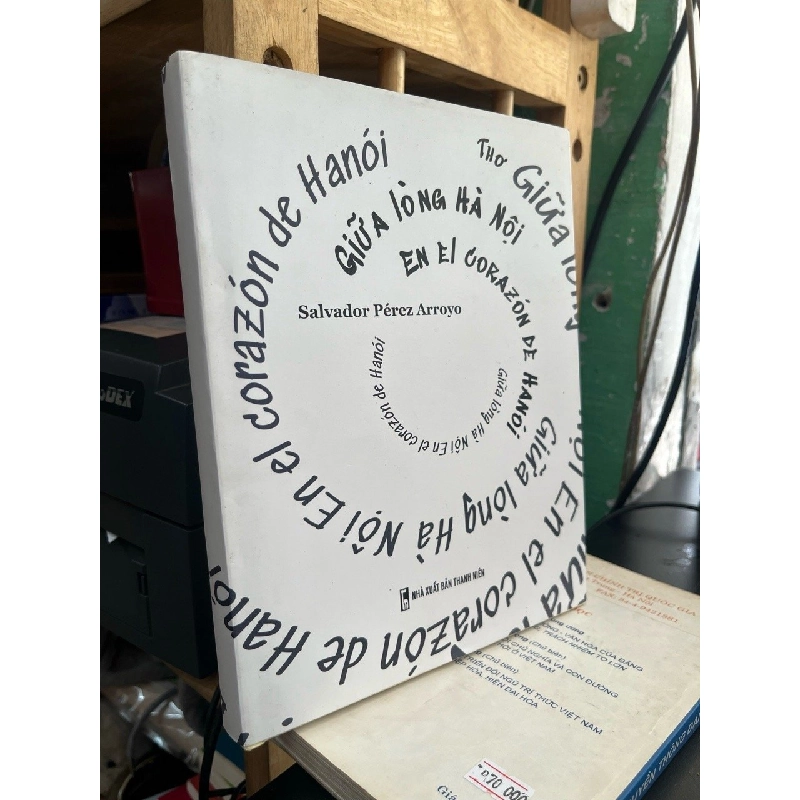 Thơ
Giữa lòng
Giữa lòng Hà Nội
En el corazón de Hanói
Salvador Pérez Arroyo
Giữa lòng Hà Nội En el corazón de Hanói
Giữa lòng Hà Nội En el corazón de Hanói
Nội En el corazón de Hanói
NHÀ XUẤT BẢN THANH NIÊN
VĂN HÓA CỦA ĐẢNG
TRÁCH NHIỆM TO LỚN
CHỦ NGHĨA VÀ CON ĐƯỜNG
Ở VIỆT NAM
ĐỘI NGŨ TRÍ THỨC VIỆT NAM
HÓA, HIỆN ĐẠI HÓA
70 000